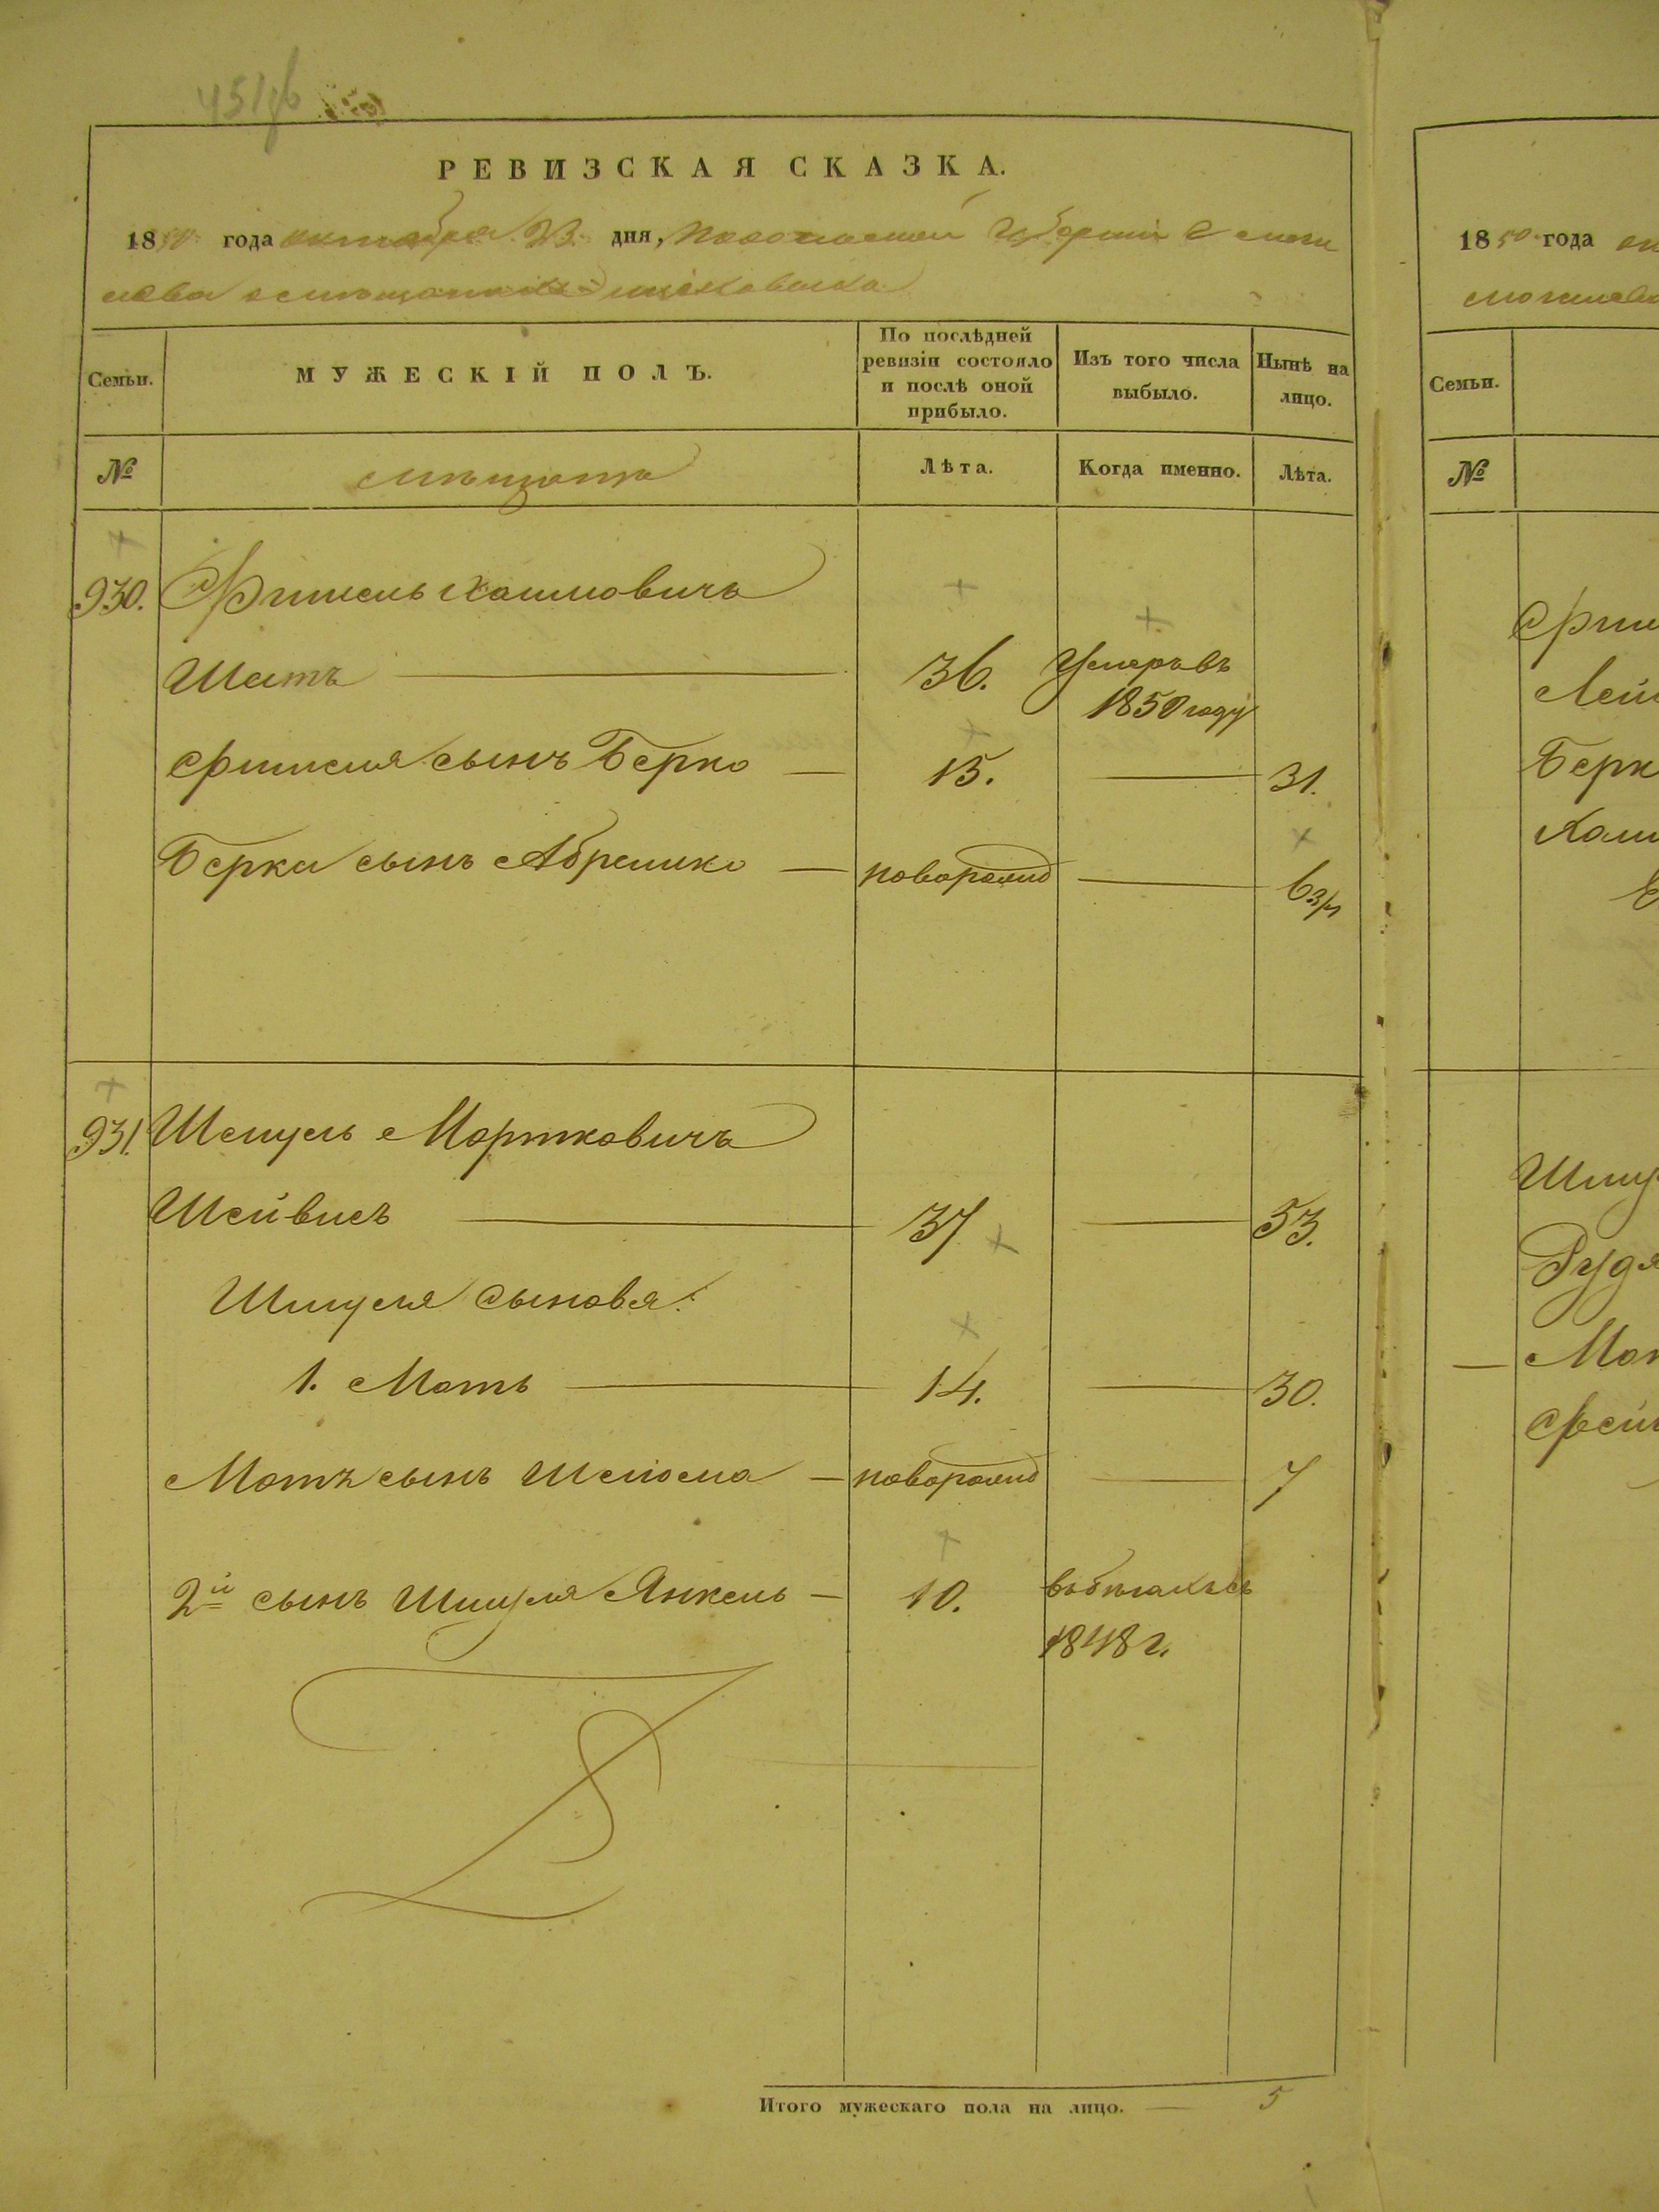 РЕВИЗСКАЯ СКАЗКА.
1850 года октября 23 дня, Подольской Губернии
Семьи.
МУЖЕСКІЙ ПОЛЪ.
По послѣдней
ревизіи состояло
и послѣ оной
прибыло.
Изъ того числа
выбыло.
Нынѣ на
лицо.
№
мѣщане
Лѣта.
Когда именно.
Лѣта.
930. Фишель Хаимовичъ
Шатъ 36. Умеръ въ
1850 году
Фишеля сынъ Берко 15. 31.
Берки сынъ Абрамко новорожд
931. Шмуль Мортковичъ
Шейвисъ 37 53.
Шмуля сыновя:
1. Моть 14. 30.
Мотя сынъ новорожд 7
2й сынъ Шмуля Янкель 10. въ бѣгахъ съ
1848 г.
Итого мужескаго пола на лицо. 5
1850 года
Семьи.
№